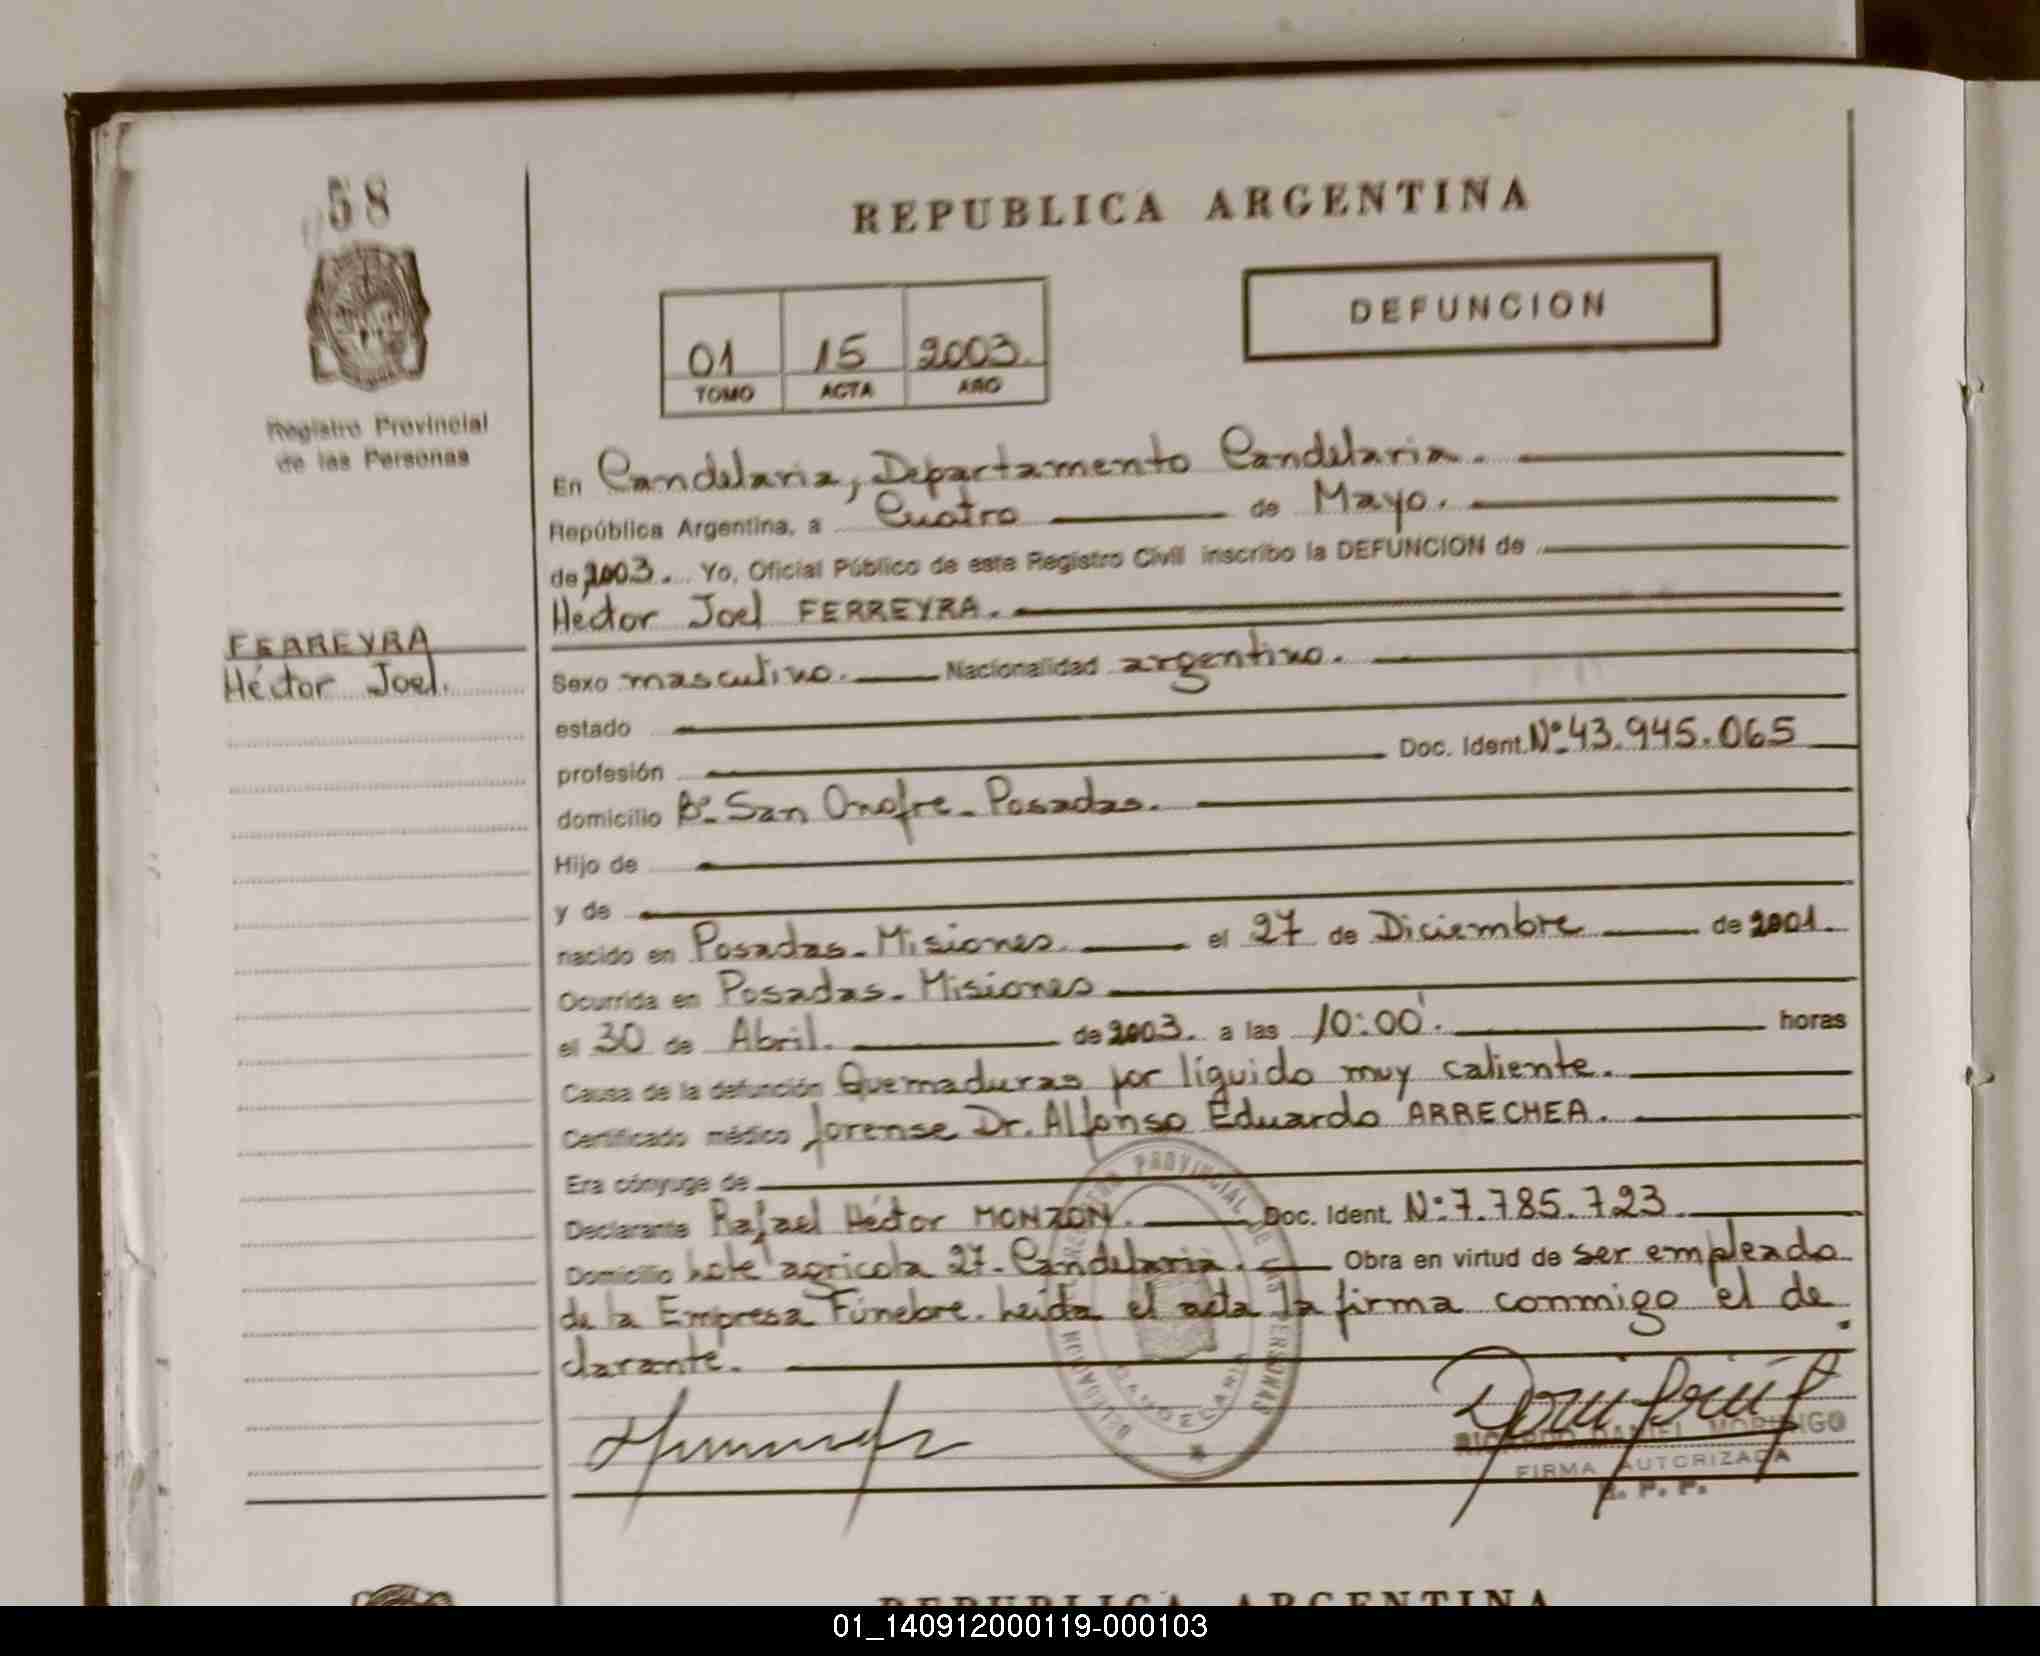 58
REPUBLICA ARGENTINA
DEFUNCION
01 15 2003.
TOMO ACTA AÑO
Registro Provincial
de las Personas
En Candelaria, Departamento Candelaria.
República Argentina, a Cuatro de Mayo.
de 2003. Yo, Oficial Público de este Registro Civil inscribo la DEFUNCION de
Hector Joel FERREYRA.
FERREYRA
Héctor Joel.
Sexo masculino. Nacionalidad argentino.
estado
profesión Doc. Ident. Nº 43.945.065
domicilio Bº San Onofre - Posadas.
Hijo de
y de
nacido en Posadas - Misiones el 27 de Diciembre de 2001.
Ocurrida en Posadas - Misiones
el 30 de Abril. de 2003. a las 10:00'. horas
Causa de la defunción Quemaduras por líquido muy caliente.
Certificado médico forense Dr. Alfonso Eduardo ARRECHEA.
Era cónyuge de
Declarante Rafael Héctor MONZON. Doc. Ident. Nº 7.785.723
Domicilio Lote agricola 27 - Candelaria. Obra en virtud de ser empleado
de la Empresa Fúnebre. Leida el acta la firma conmigo el de
clarante.
REGISTRO PROVINCIAL DE LAS PERSONAS
DELEGACION
CANDELARIA
RICARDO DANIEL MORINIGO
FIRMA AUTORIZADA
R. P. P.
REPUBLICA ARGENTINA
01_140912000119-000103